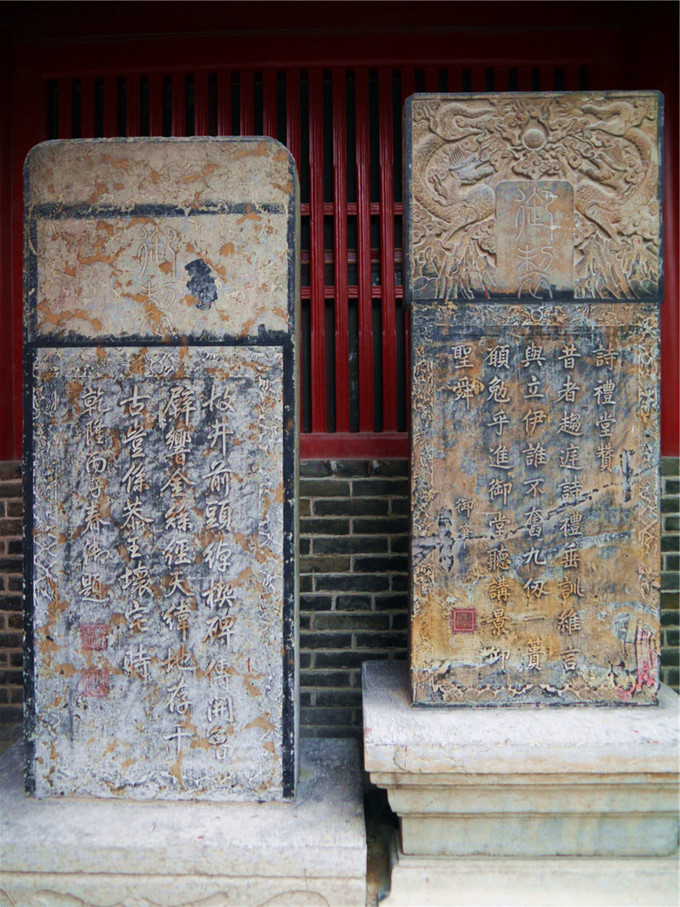 御製
詩禮堂贊
昔者趨庭詩禮垂訓維言
與立伊誰不奮九仞一簣
願勉乎進御堂聽講景仰
聖舜
御製
故井前頭綽楔碑傳聞魯
壁響金絲經天緯地存千
古豈係恭王壞宅時
乾隆丙子春御題